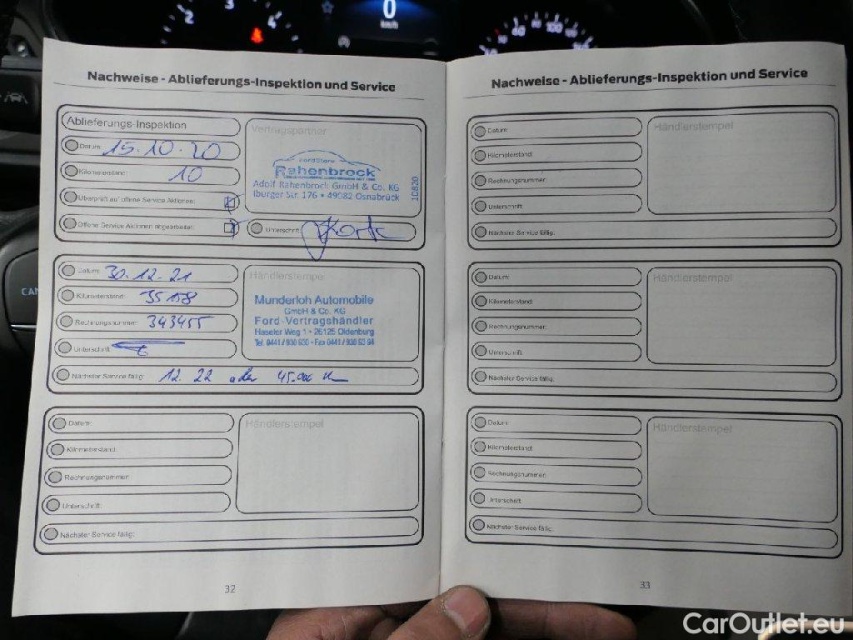 2
3
0
km/h
100
CAN
Nachweise - Ablieferungs-Inspektion und Service
Ablieferungs-Inspektion
Datum: 15.10.20
Kilometerstand: 10
Überprüft auf offene Service Aktionen:
Offene Service Aktionen abgearbeitet:
Vertragspartner
Rahenbrock
Adolf Rahenbrock GmbH & Co. KG
Iburger Str. 176 • 49082 Osnabrück
Unterschrift:
Datum: 30.12.21
Kilometerstand: 35158
Rechnungsnummer: 343455
Unterschrift:
Nächster Service fällig: 12.22 oder 45.000 km
Händlerstempel
Munderloh Automobile
GmbH & Co. KG
Ford-Vertragshändler
26125 Oldenburg
Datum:
Kilometerstand:
Rechnungsnummer:
Unterschrift:
Nächster Service fällig:
Händlerstempel
32
Nachweise - Ablieferungs-Inspektion und Service
Datum:
Kilometerstand:
Rechnungsnummer:
Unterschrift:
Nächster Service fällig:
Händlerstempel
Datum:
Kilometerstand:
Rechnungsnummer:
Unterschrift:
Nächster Service fällig:
Händlerstempel
Datum:
Kilometerstand:
Rechnungsnummer:
Unterschrift:
Nächster Service fällig:
Händlerstempel
33
CarOutlet.eu